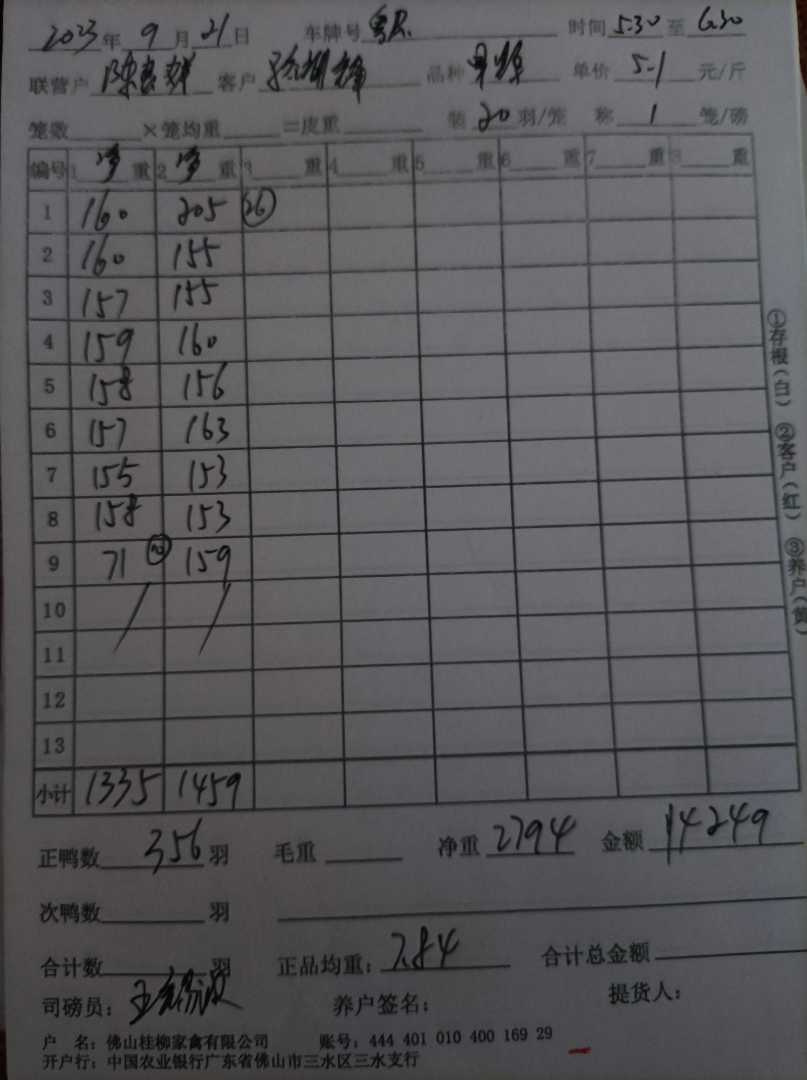 2023年 9 月 21 日 车牌号 粤R 时间 5:30 至 6:30
联营户 客户 品种 单价 5.1 元/斤
笼数 ×笼均重 =皮重 装 20 羽/笼 称 1 笼/磅
编号 1 净 重 2 净 重 3 重 4 重 5 重 6 重 7 重 8 重
1 160 205 (26)
2 160 155
3 157 155
4 159 160
5 158 156
6 157 163
7 155 153
8 158 153
9 71 159
10 / /
11
12
13
小计 1335 1459
正鸭数 356 羽 毛重 净重 2794 金额 14249
次鸭数 羽
合计数 羽 正品均重: 7.84 合计总金额
司磅员: 养户签名: 提货人:
户 名: 佛山桂柳家禽有限公司 账号: 444 401 010 400 169 29
开户行: 中国农业银行广东省佛山市三水区三水支行
①存根(白) ②客户(红) ③养户(黄)